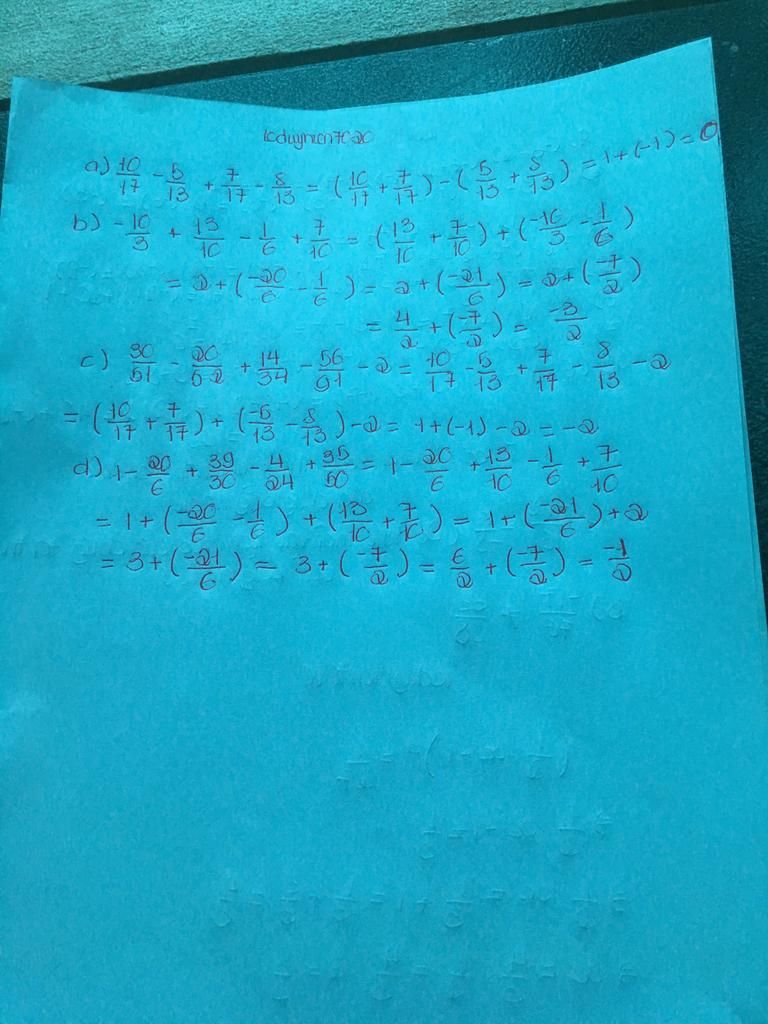 a) 10/17 - 5/13 + 7/17 - 8/13 = (10/17 + 7/17) - (5/13 + 8/13) = 1 + (-1) = 0
b) -10/3 + 13/10 - 1/6 + 7/10 = (13/10 + 7/10) + (-10/3 - 1/6)
= 2 + (-20/6 - 1/6) = 2 + (-21/6) = 2 + (-7/2)
= 4/2 + (-7/2) = -3/2
c) 30/51 - 20/52 + 14/34 - 56/91 - 2 = 10/17 - 5/13 + 7/17 - 8/13 - 2
= (10/17 + 7/17) + (-5/13 - 8/13) - 2 = 1 + (-1) - 2 = -2
d) 1 - 20/6 + 39/30 - 4/24 + 35/50 = 1 - 20/6 + 13/10 - 1/6 + 7/10
= 1 + (-20/6 - 1/6) + (13/10 + 7/10) = 1 + (-21/6) + 2
= 3 + (-21/6) = 3 + (-7/2) = 6/2 + (-7/2) = -1/2